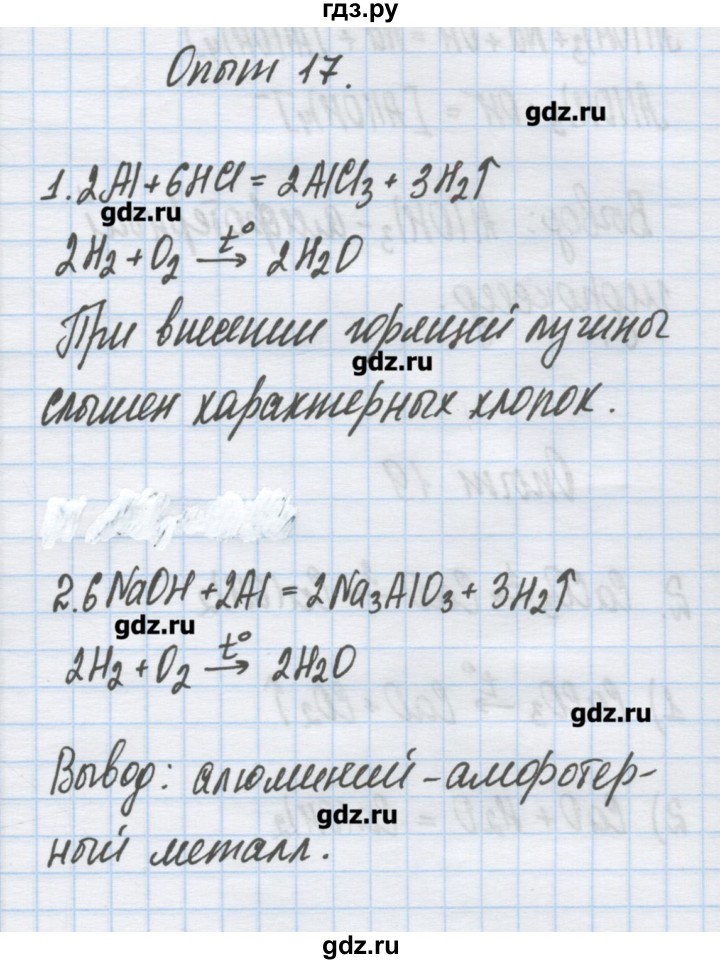 гдз.ру
Опыт 17.
gdz.ru
1. 2Al + 6HCl = 2AlCl₃ + 3H₂↑
gdz.ru
2H₂ + O₂ →t° 2H₂O
При внесении горящей лучины
gdz.ru
слышен характерных хлопок.
2. 6NaOH + 2Al = 2Na₃AlO₃ + 3H₂↑
gdz.ru
2H₂ + O₂ →t° 2H₂O
gdz.ru
Вывод: алюминий – амфотер-
gdz.ru
ный металл.
gdz.ru